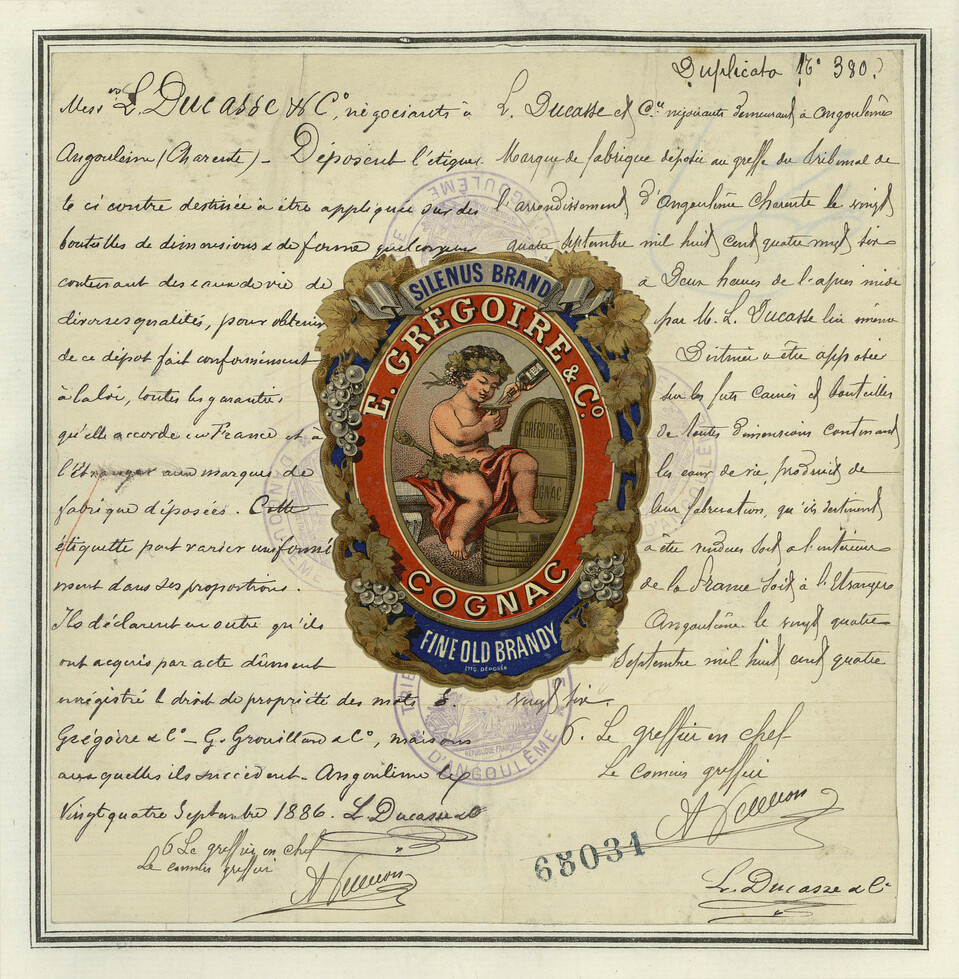 Duplicata N° 380.
Messrs L. Ducasse & Co, négociants à
Angoulême (Charente) - Déposent l'étiquet
te ci contre destinée à être appliquée sur des
bouteilles de dimensions & de forme quelconques
contenant des eaux de vie de
diverses qualités, pour obtenir
de ce dépôt fait conformément
à la loi, toutes les garanties
qu'elle accorde en France et à
l'Etranger aux marques de
fabrique déposées. Cette
étiquette peut varier uniformé
ment dans ses proportions.
Ils déclarent en outre qu'ils
ont acquis par acte dûment
enrégistré le droit de propriété des mots E.
Grégoire & Co - G. Grouillard & Co, maisons
auxquelles ils succèdent - Angoulême le
Vingt quatre Septembre 1886. L. Ducasse & Co
6 Le greffier en chef
Le commis greffier
L. Ducasse et Cie négociants demeurant à Angoulême
Marque de fabrique déposée au greffe du tribunal de
l'arrondissement d'Angoulême Charente le vingt
quatre septembre mil huit cent quatre vingt six
à Deux heures de l'après midi
par M. L. Ducasse lui même
Destinée à être apposée
sur les futs caisses et bouteilles
de toutes dimensions contenant
les eaux de vie, produits de
leur fabrication, qu'ils destinent
à être vendues soit à l'intérieur
de la France soit à l'Etranger
Angoulême le vingt quatre
Septembre mil huit cent quatre
vingt six.
6. Le greffier en chef
Le commis greffier
L. Ducasse & Cie
65031
SILENUS BRAND
E. GRÉGOIRE & Co
GRÉGOIRE & C
OGNAC
COGNAC
FINE OLD BRANDY
ETTE. DÉPOSÉE
RÉPUBLIQUE FRANÇAISE
D'ANGOULÊME